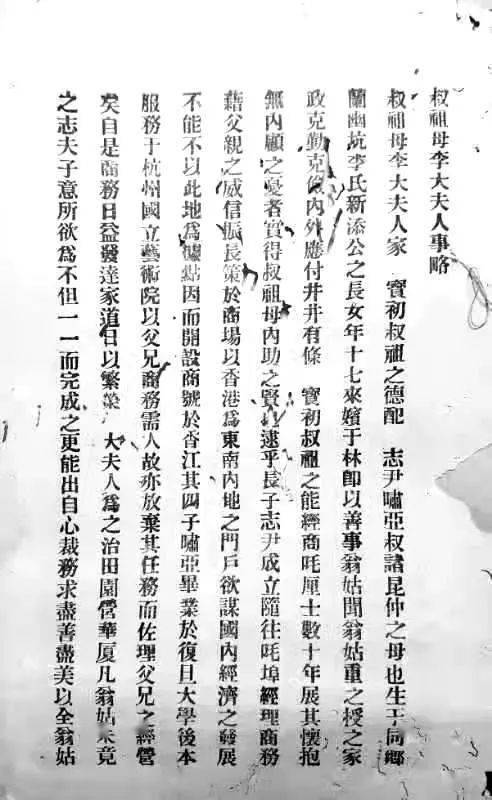 叔祖母李大夫人事略
叔祖母李大夫人家 寶初叔祖之德配 志尹嘯亞叔諸昆仲之母也生于同鄉
蘭幽坑李氏新添公之長女年十七來嬪于林卽以善事翁姑聞翁姑重之授之家
政克勤克儉內外應付井井有條 寶初叔祖之能經商吒厘士數十年展其懷抱
無內顧之憂者實得叔祖母內助之賢 逮乎長子志尹成立隨往吒埠經理商務
藉父親之威信振長策於商場以香港爲東南內地之門戶欲謀國內經濟之發展
不能不以此地爲據點因而開設商號於香江其四子嘯亞畢業於復旦大學後本
服務于杭州國立藝術院以父兄商務需人故亦放棄其任務而佐理父兄之經營
矣自是商務日益發達家道日以繁榮 大夫人爲之治田園營華厦凡翁姑未竟
之志夫子意所欲爲不但一一而完成之更能出自心裁務求盡善盡美以全翁姑